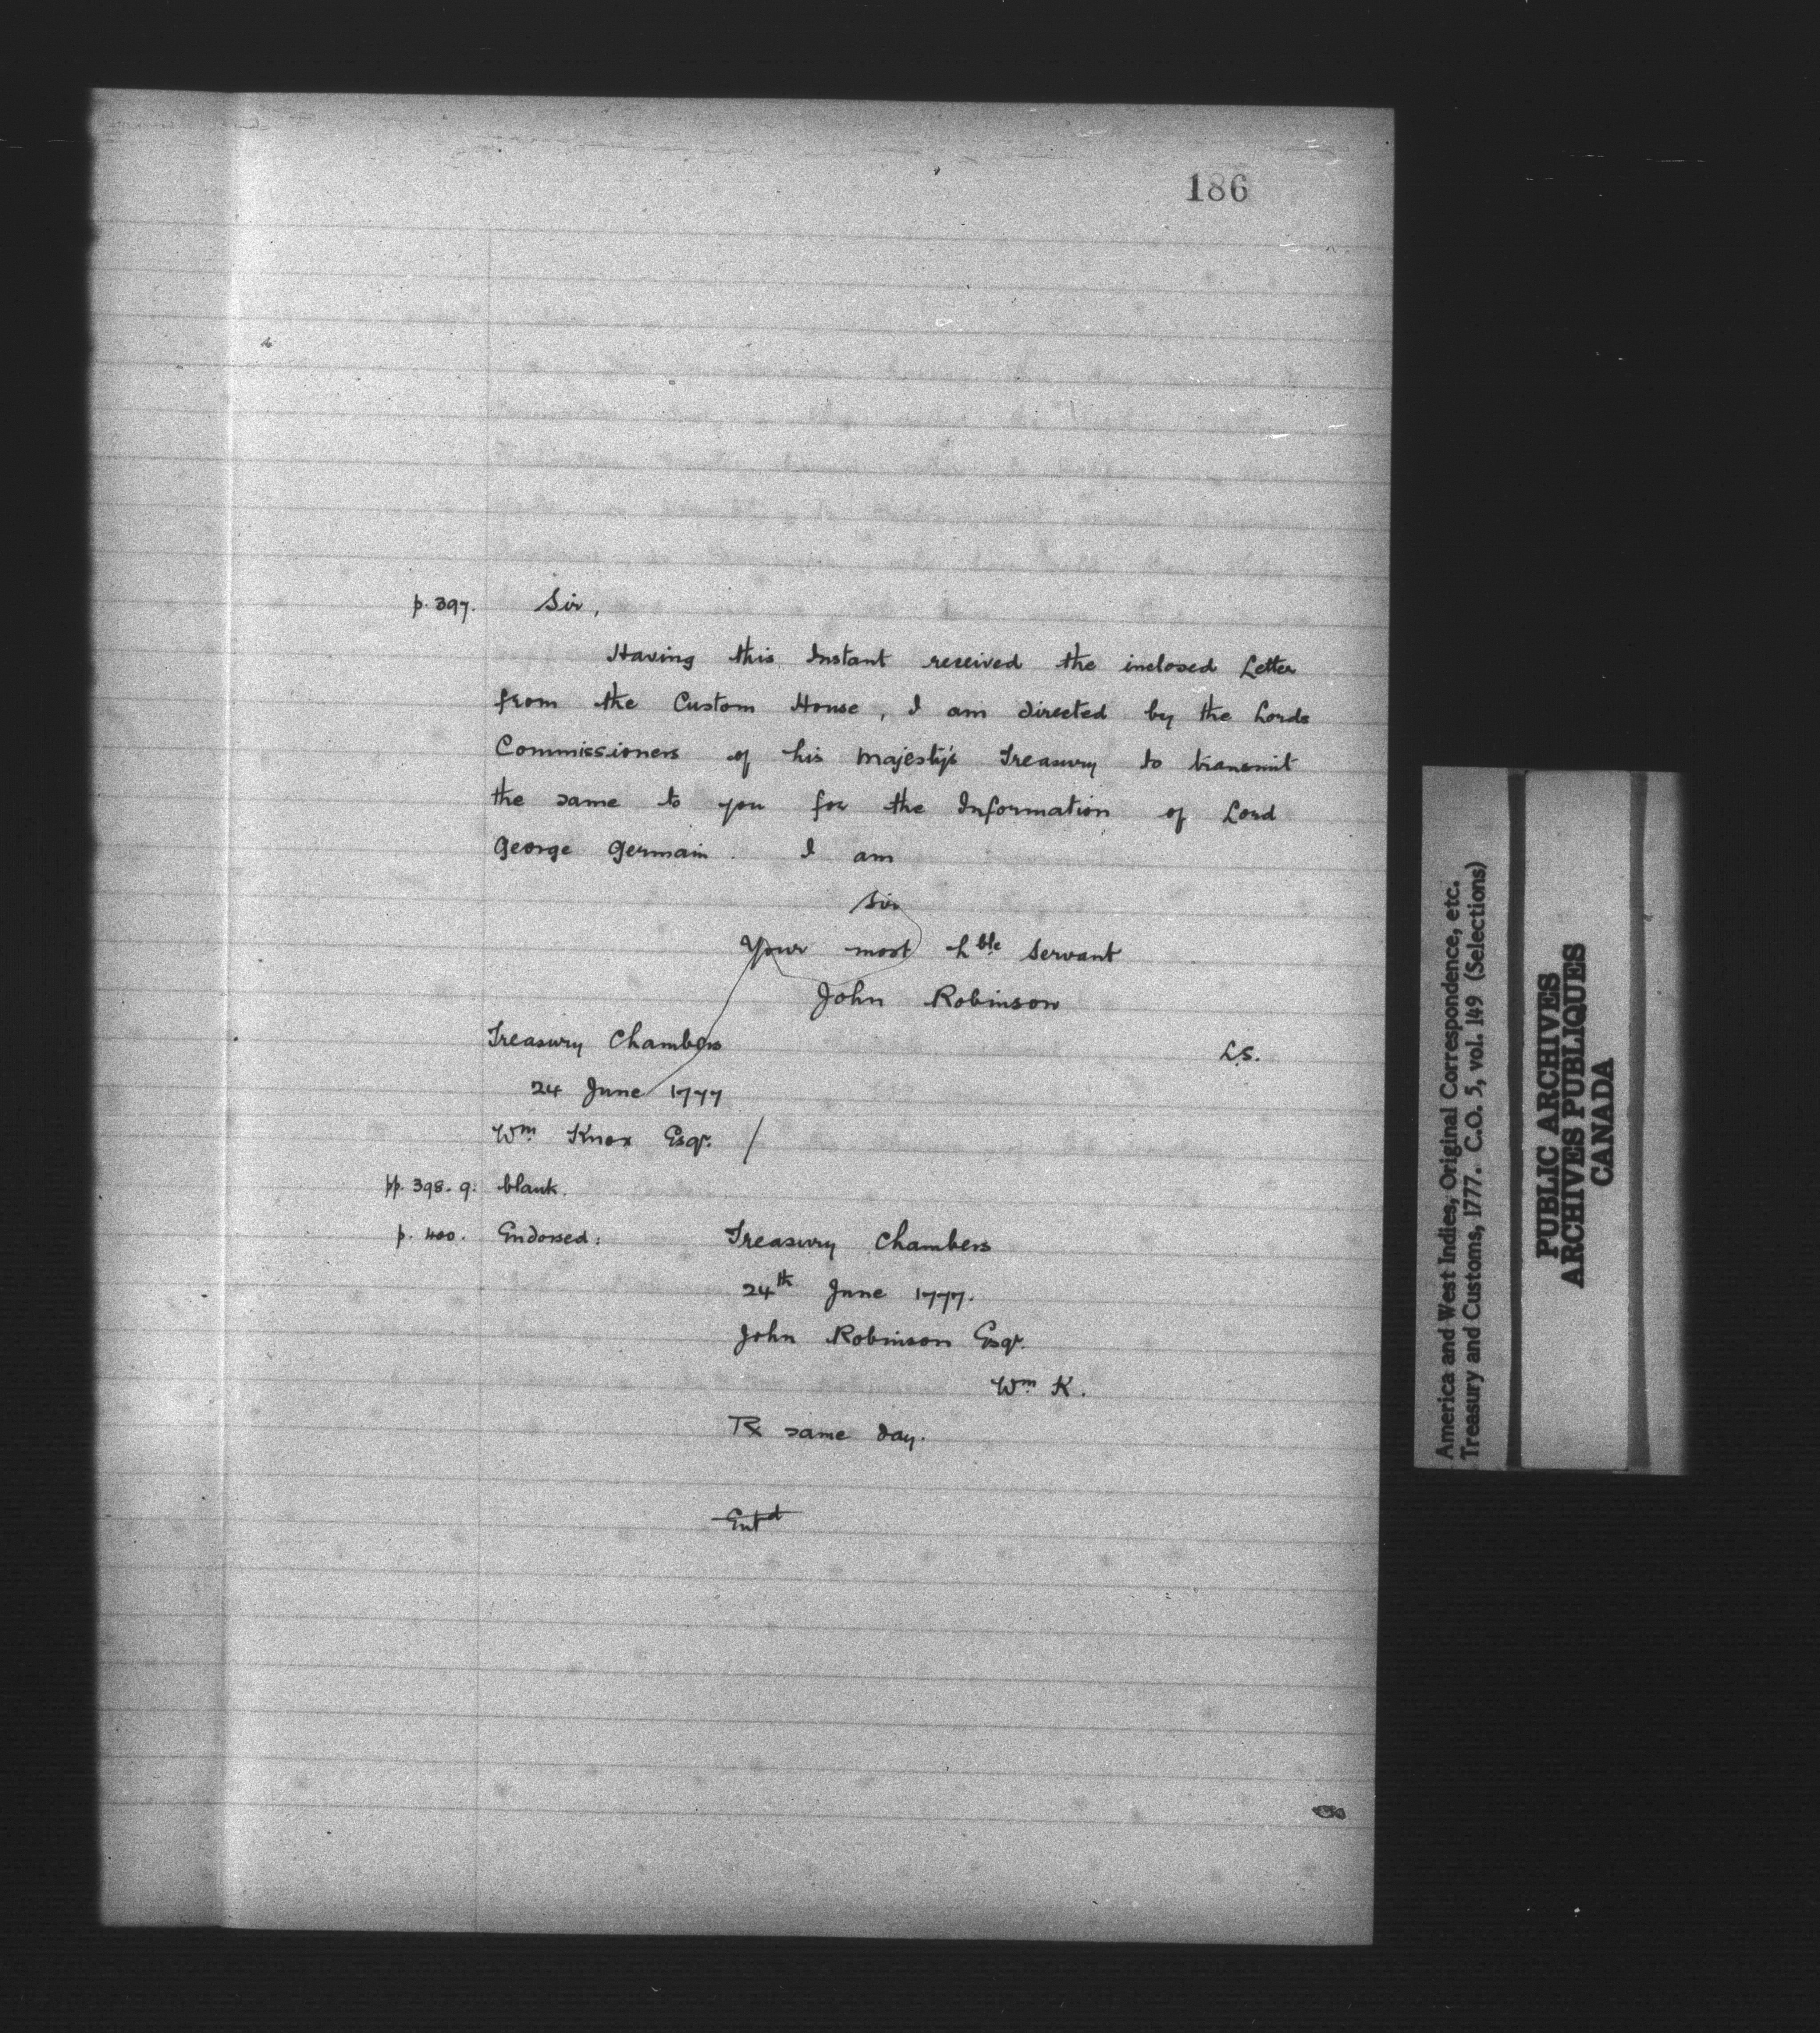 186
p. 397. Sir,
Having this Instant received the inclosed Letter
from the Custom House, I am directed by the Lords
Commissioners of his Majesty's Treasury to transmit
the same to you for the Information of Lord
George Germain. I am
Sir
Your most hble servant
John Robinson
Treasury Chambers
L.S.
24 June 1777
Wm Knox Esqr. /
pp. 398. 9. blank.
p. 400. Endorsed: Treasury Chambers
24th June 1777.
John Robinson Esqr.
Wm K.
Rx same day.
Entd
America and West Indies, Original Correspondence, etc.
Treasury and Customs, 1777. C.O. 5, vol. 149 (Selections)
PUBLIC ARCHIVES
ARCHIVES PUBLIQUES
CANADA